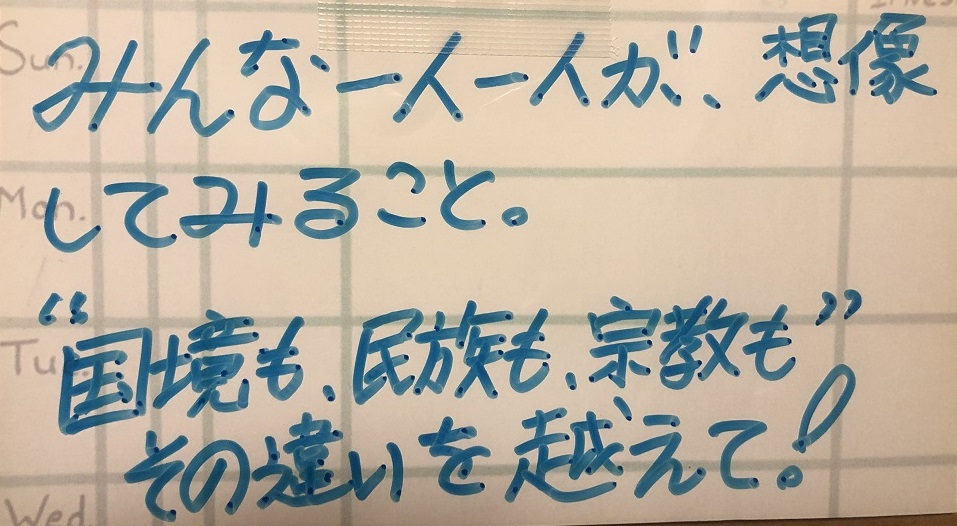 Sun.
みんな一人一人が、想像
Mon.
してみること。
“国境も、民族も、宗教も”
Tu
その違いを越えて!
Wed.